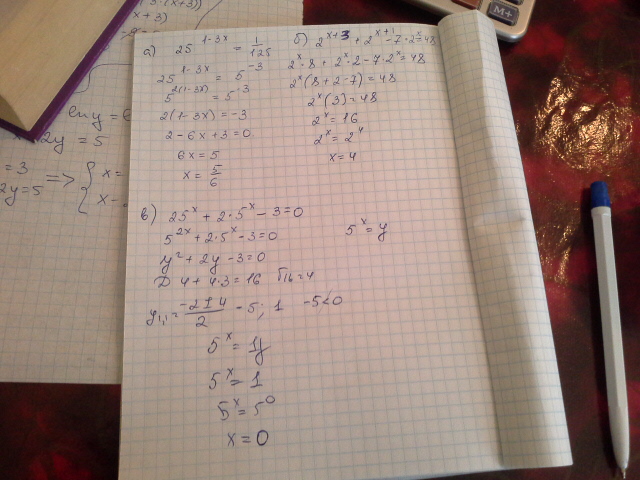 а) 25^(1-3x) = 1/125
25^(1-3x) = 5^-3
5^(2(1-3x)) = 5^-3
2(1-3x) = -3
2-6x+3=0
6x=5
x = 5/6
б) 2^(x+3) + 2^(x+1) - 7·2^x = 48
2^x·8 + 2^x·2 - 7·2^x = 48
2^x(8+2-7) = 48
2^x(3) = 48
2^x = 16
2^x = 2^4
x = 4
в) 25^x + 2·5^x - 3 = 0
5^(2x) + 2·5^x - 3 = 0
5^x = y
y² + 2y - 3 = 0
D 4 + 4·3 = 16 √16 = 4
y₁,₂ = (-2±4)/2 - 5; 1 -5<0
5^x = y
5^x = 1
5^x = 5^0
x = 0
x+3)
2y = 5
= 3
2y = 5 => { x =
x -
M+